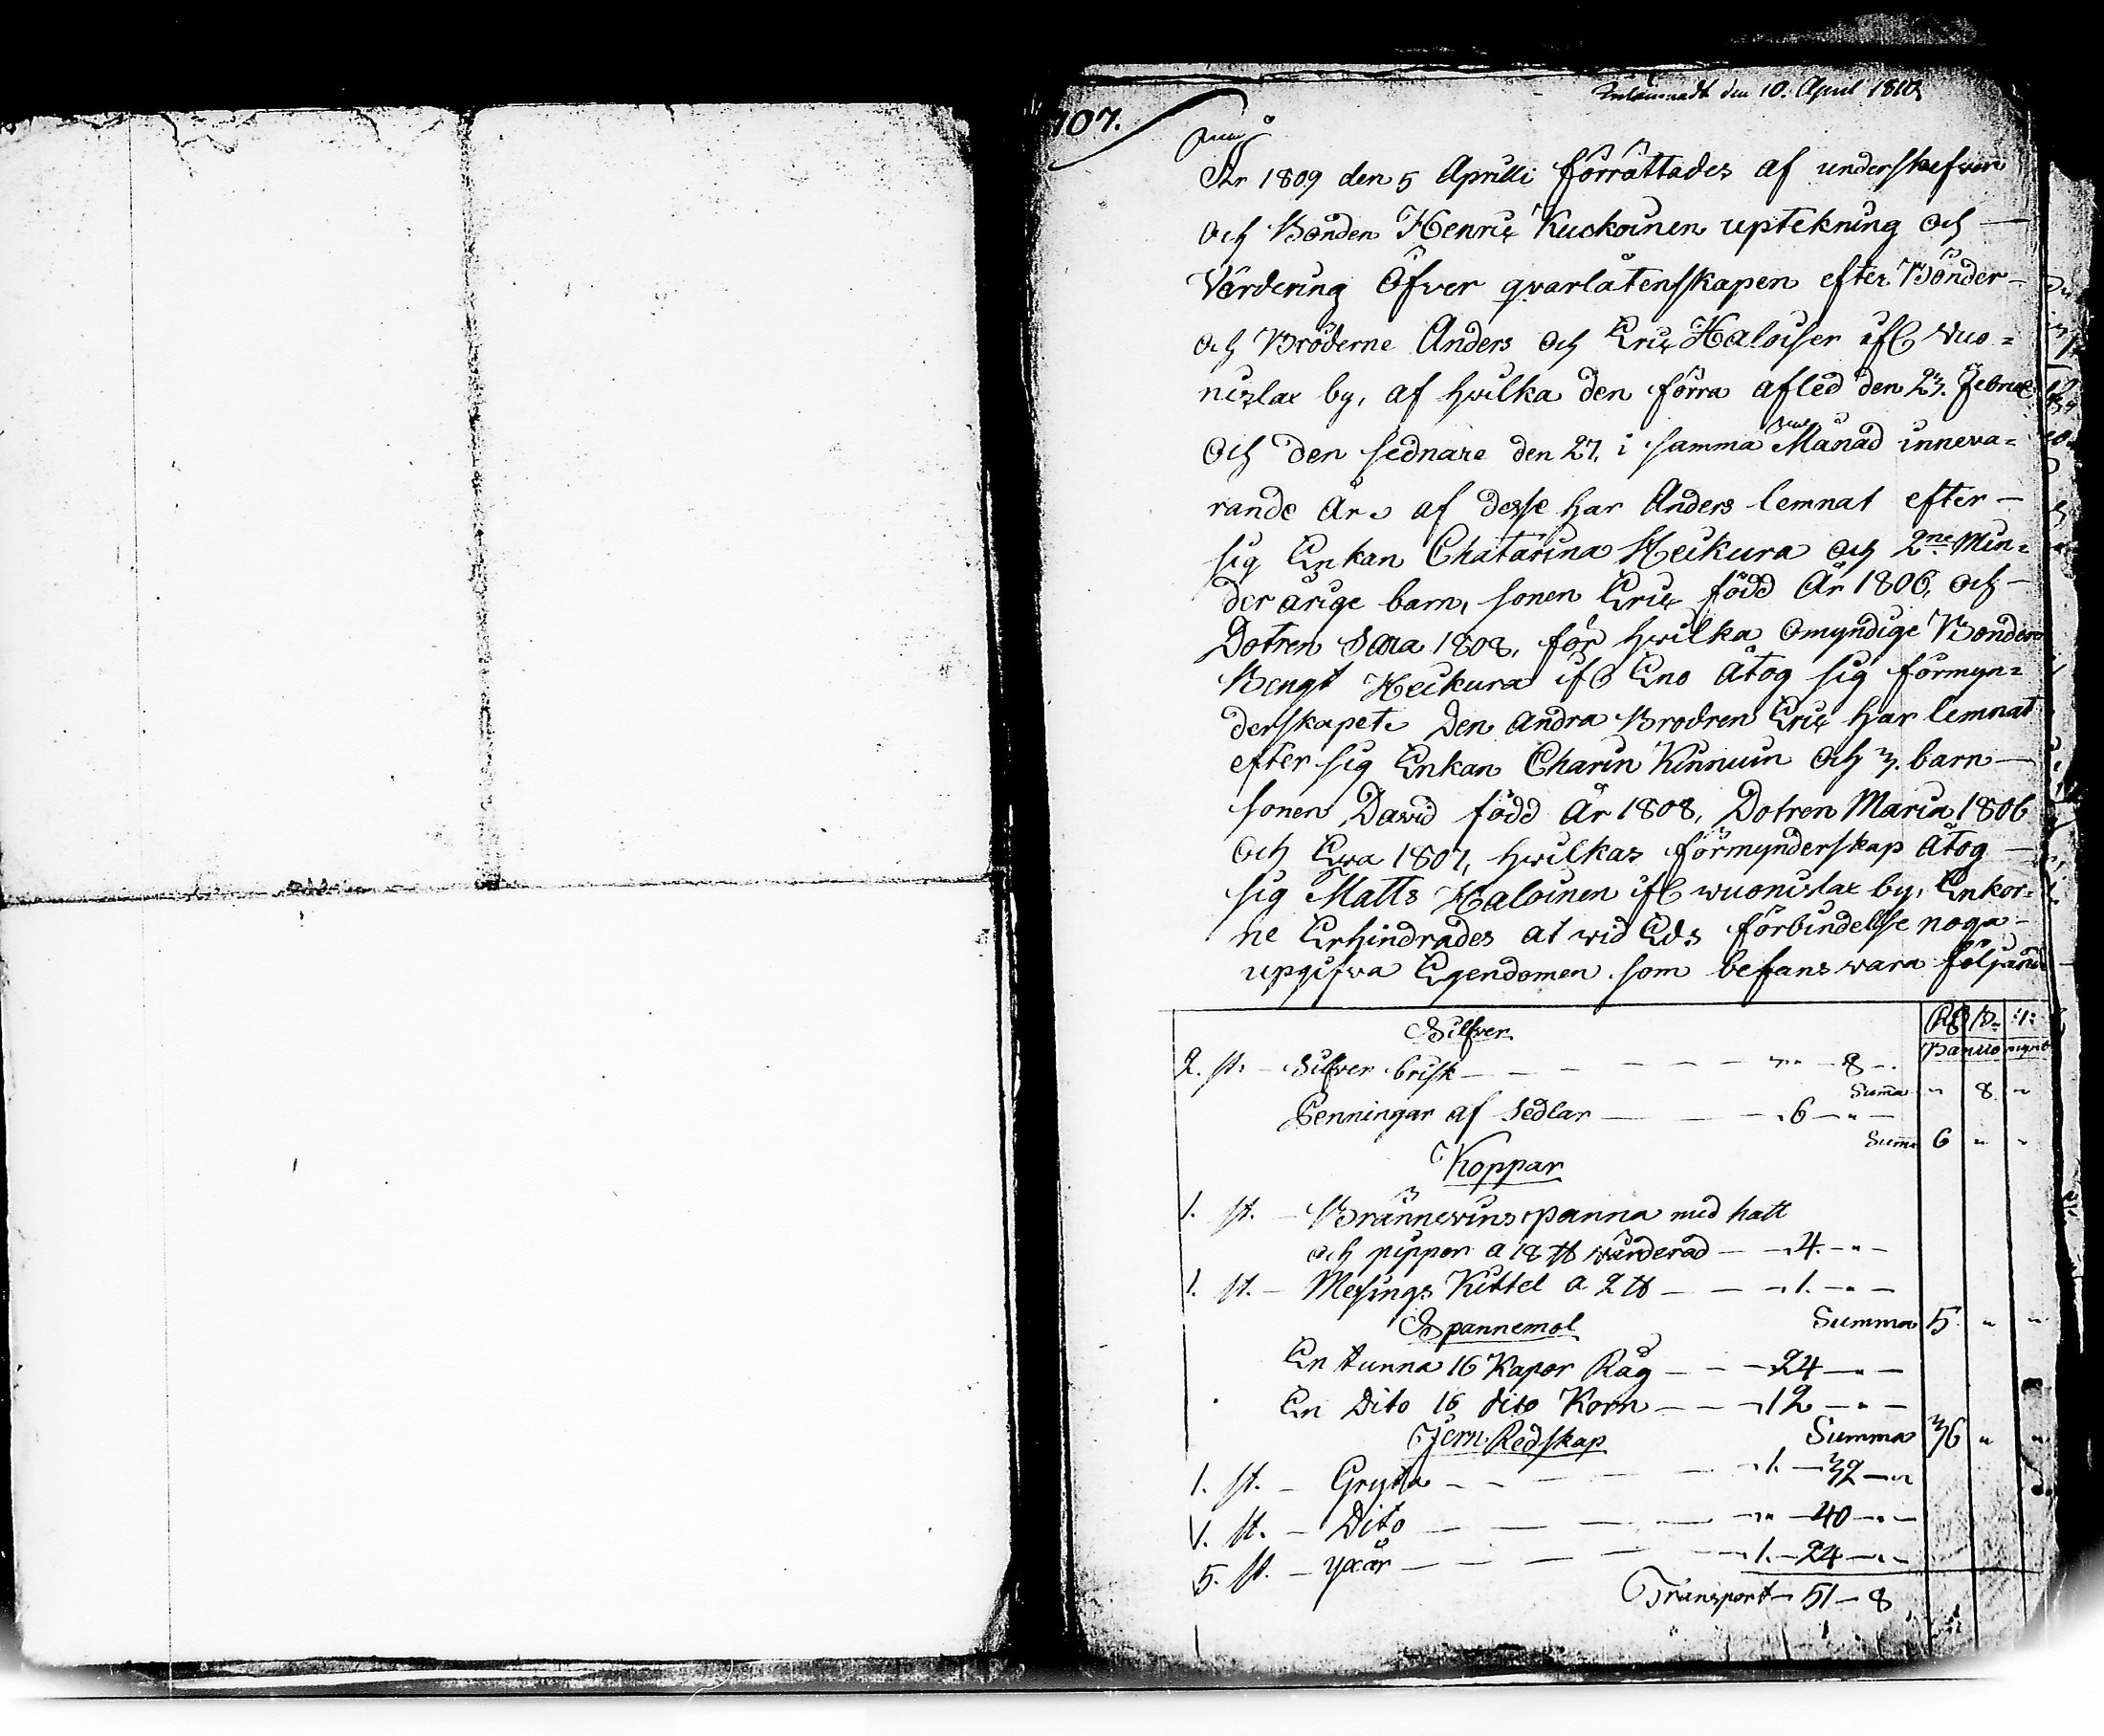 107.
Inlämnadt den 10. April 1810
År 1809 den 5 Aprilli förrättades af underskrefven
och Bonden Henric Kuokoinen uptekning och —
Värdering Öfver qvarlåtenskapen efter Bönder-
och Bröderne Anders och Eric Haloiser ifr Wuo=
nislax by, af hwilka den förra afled den 23. Februe
Och den sednare den 27. i samma Månad inneva=
rande År. af desse har Anders lemnat efter —
sig Enkan Chatarina Heikura och 2ne Min=
der arige barn, sonen Eric född År 1806, och —
Dotren Sara 1808, för hwilka omyndige Bonden
Bengt Heikura ifr Eno åtog sig förmyn=
derskapet. Den andra Brodren Eric har lemnat
efter sig Enkan Charin Kinnuin och 3. barn —
sonen David född År 1808, Dotren Maria 1806
och Ewa 1807, hwilkas förmynderskap åtog —
sig Matts Haloinen ifr wuonislax by, Enkor=
ne Erhindrades at wid Eds förbindellse noga —
upgifva Egendomen som befans vara följande
Silfver
Banco mynt
2. st. — Silfver brisk — — — — — „ — 8 — .
Summa „ 8 „
Penningar af Sedlar — — — 6 — „ —
Summa 6 „ „
Koppar
1. st. — Brännevins panna med hatt
och pippor a 18 ℔ värderad — — 4. — „ —
1. st. — Mesings Kittel a 2 ℔ — — — 1. — „ —
Spannemol Summa 5 „ „
En tunna 16 Kapor Råg — — — 24 — „ —
En Dito 16 dito Korn — — — 12 — „ —
Jern Redskap Summa 36 „ „
1. st. — Gryta — — — — 1. — 32 — „
1. st. — Dito — — — — — „ — 40 — „ —
5. st. — yxar — — — — — 1. — 24 — „ —
Transport — 51 — 8